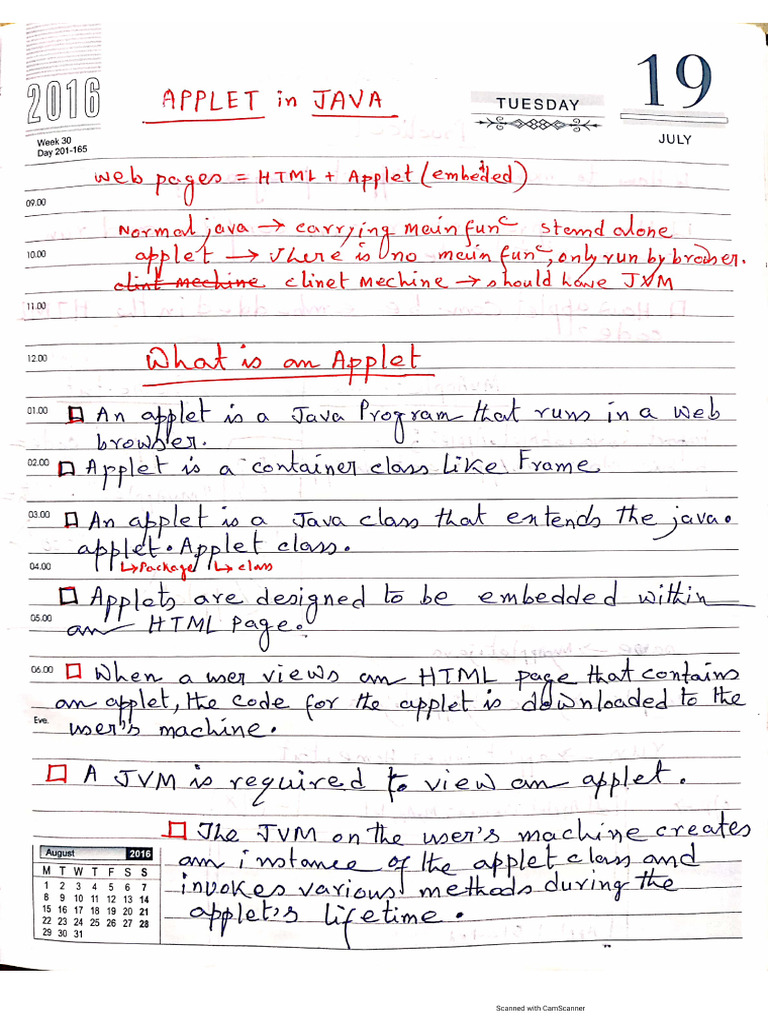 2016
Week 30
Day 201-165
APPLET in JAVA
TUESDAY
19
JULY
web pages = HTML + Applet (embeded)
09.00
Normal java → carrying main func stand alone
10.00
applet → There is no main func, only run by browser.
clint mechine clinet mechine → should have JVM
11.00
12.00
What is an Applet
01.00
An applet is a Java Program that runs in a web
browser.
02.00
Applet is a container class like Frame
03.00
An applet is a Java class that extends the java.
applet.Applet class.
04.00
↳Package ↳class
Applets are designed to be embedded within
05.00
an HTML page.
06.00
When a user views an HTML page that contains
an applet, the code for the applet is downloaded to the
Eve.
user's machine.
A JVM is required to view an applet.
The JVM on the user's machine creates
an instance of the applet class and
invokes various methods during the
applet's lifetime.
August 2016
M T W T F S S
1 2 3 4 5 6 7
8 9 10 11 12 13 14
15 16 17 18 19 20 21
22 23 24 25 26 27 28
29 30 31
Scanned with CamScanner